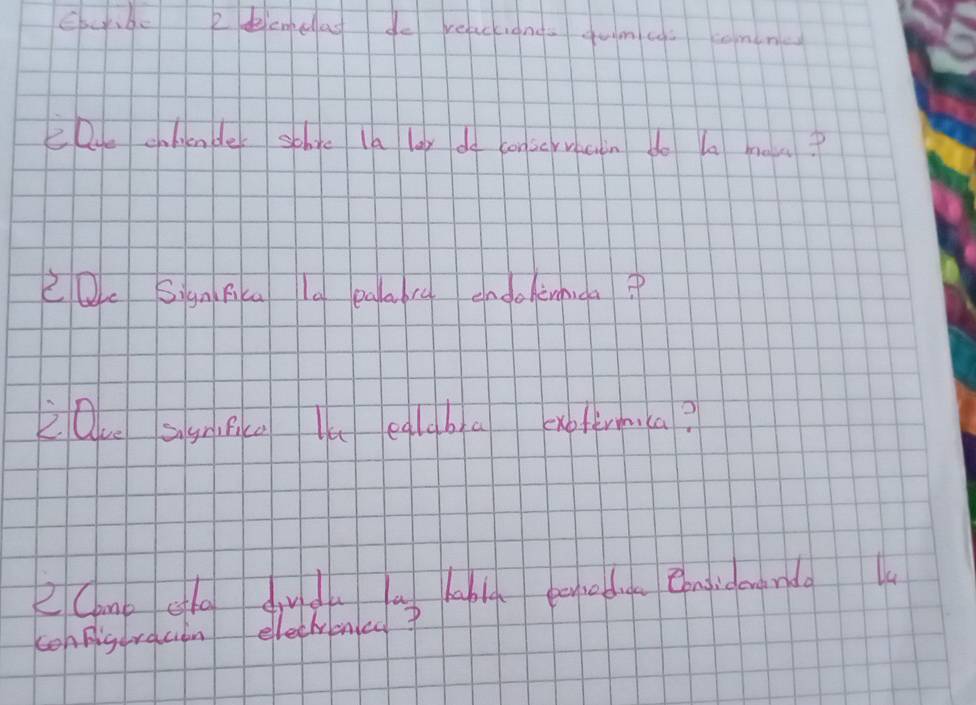 Escribe 2 ejemplos de reacciones químicas comunes
¿Que entiendes sobre la ley de conservación de la masa?
¿Que Significa la palabra endotérmica?
¿Que significa la palabra exotérmica?
¿Como esta divida la tabla periodica Considerando la
configuración electronica?